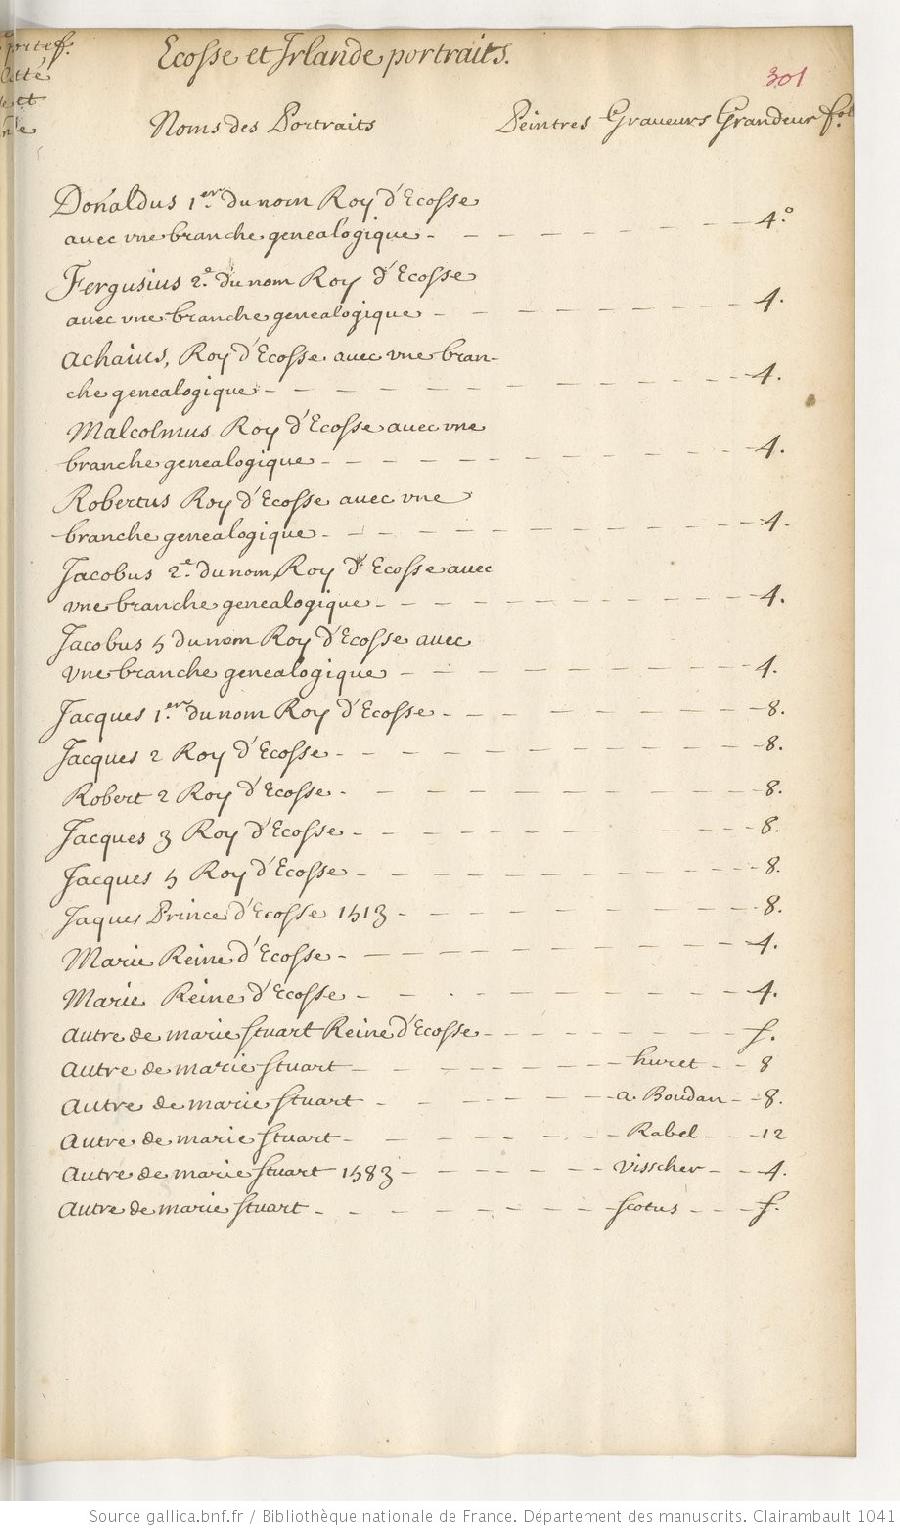 portef.
Cotté
et
Ecosse et Irlande portraits.
301
Noms des Portraits Peintres Graveurs Grandeur fol
Donaldus 1.er du nom Roy d'Ecosse
avec vne branche genealogique - - - - - - - - 4.°
Fergusius 2.e du nom Roy d'Ecosse
avec vne branche genealogique - - - - - - - - 4.
Achaius, Roy d'Ecosse avec vne bran-
che genealogique - - - - - - - - 4.
Malcolmus Roy d'Ecosse avec vne
branche genealogique - - - - - - - - 4.
Robertus Roy d'Ecosse avec vne
branche genealogique - - - - - - - - 4.
Jacobus 2.e du nom Roy d'Ecosse avec
vne branche genealogique - - - - - - - - 4.
Jacobus 5 du nom Roy d'Ecosse avec
vne branche genealogique - - - - - - - - 4.
Jacques 1.er du nom Roy d'Ecosse - - - - - - - - 8.
Jacques 2 Roy d'Ecosse - - - - - - - - 8.
Robert 2 Roy d'Ecosse - - - - - - - - 8.
Jacques 3 Roy d'Ecosse - - - - - - - - 8.
Jacques 5 Roy d'Ecosse - - - - - - - - 8.
Jaques Prince d'Ecosse 1513 - - - - - - - - 8.
Marie Reine d'Ecosse - - - - - - - - 4.
Marie Reine d'Ecosse - - - - - - - - 4.
Autre de marie Stuart Reine d'Ecosse - - - - - - - - f.
Autre de marie Stuart - - - - - - huret - - 8
Autre de marie Stuart - - - - - - a. Boudan - - 8.
Autre de marie Stuart - - - - - - Rabel - 12
Autre de marie Stuart 1583 - - - - - - visscher - - 4.
Autre de marie Stuart - - - - - - Scotus - - - f.
Source gallica.bnf.fr / Bibliothèque nationale de France. Département des manuscrits. Clairambault 1041